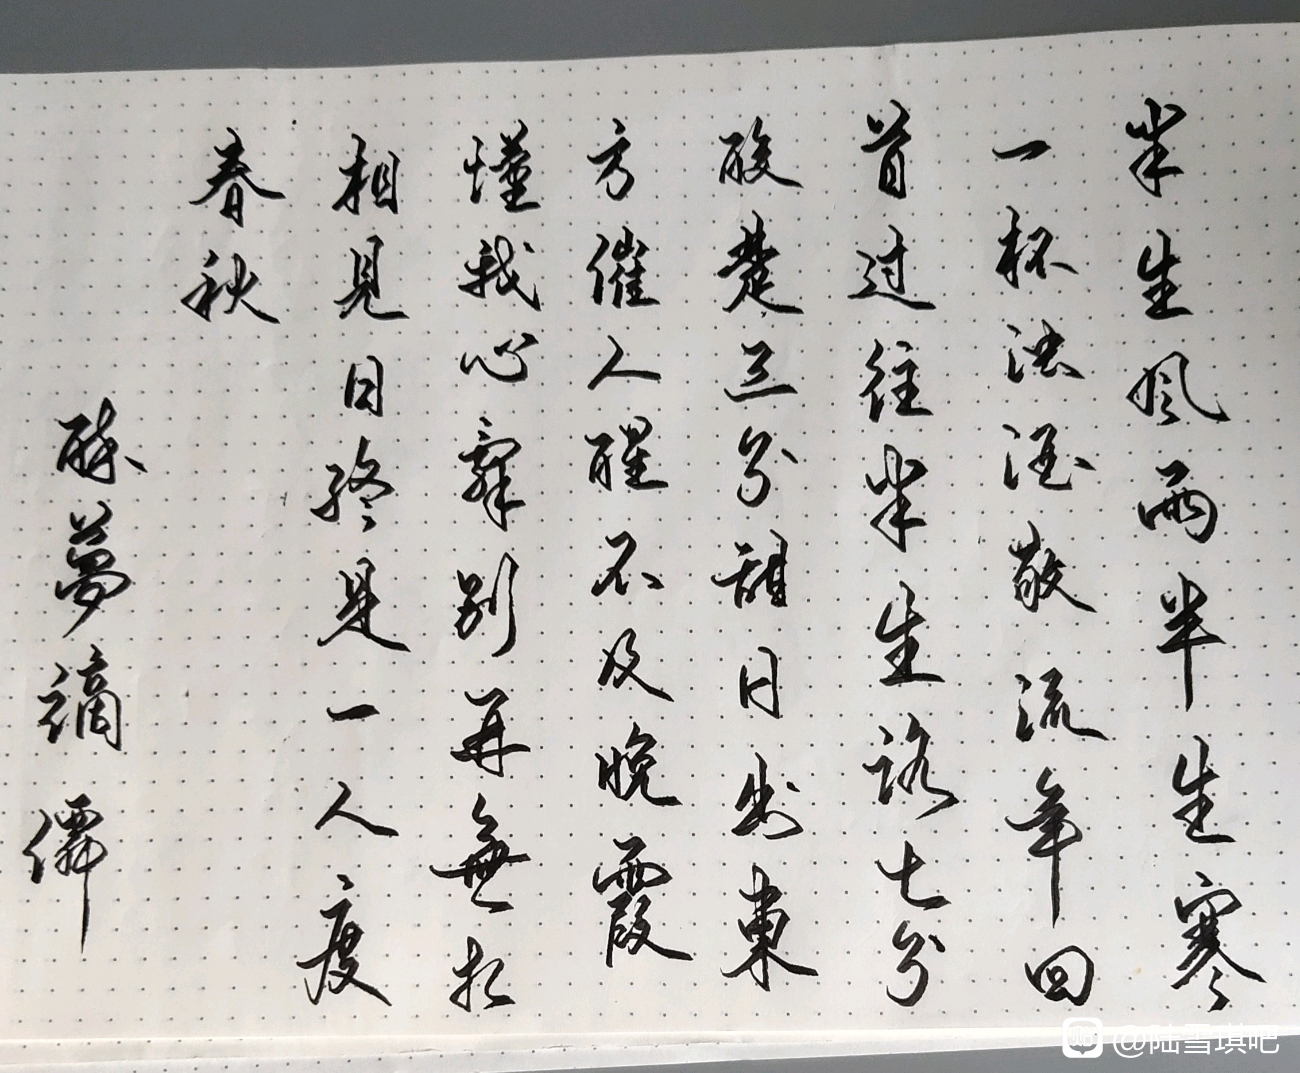 半生风雨半生寒
一杯浊酒敬流年回
首过往半生路七分
酸楚三分甜日出東
方催人醒不及晚霞
懂我心辭别再無
相見日終是一人度
春秋
醉夢謫僊
@陆雪琪吧